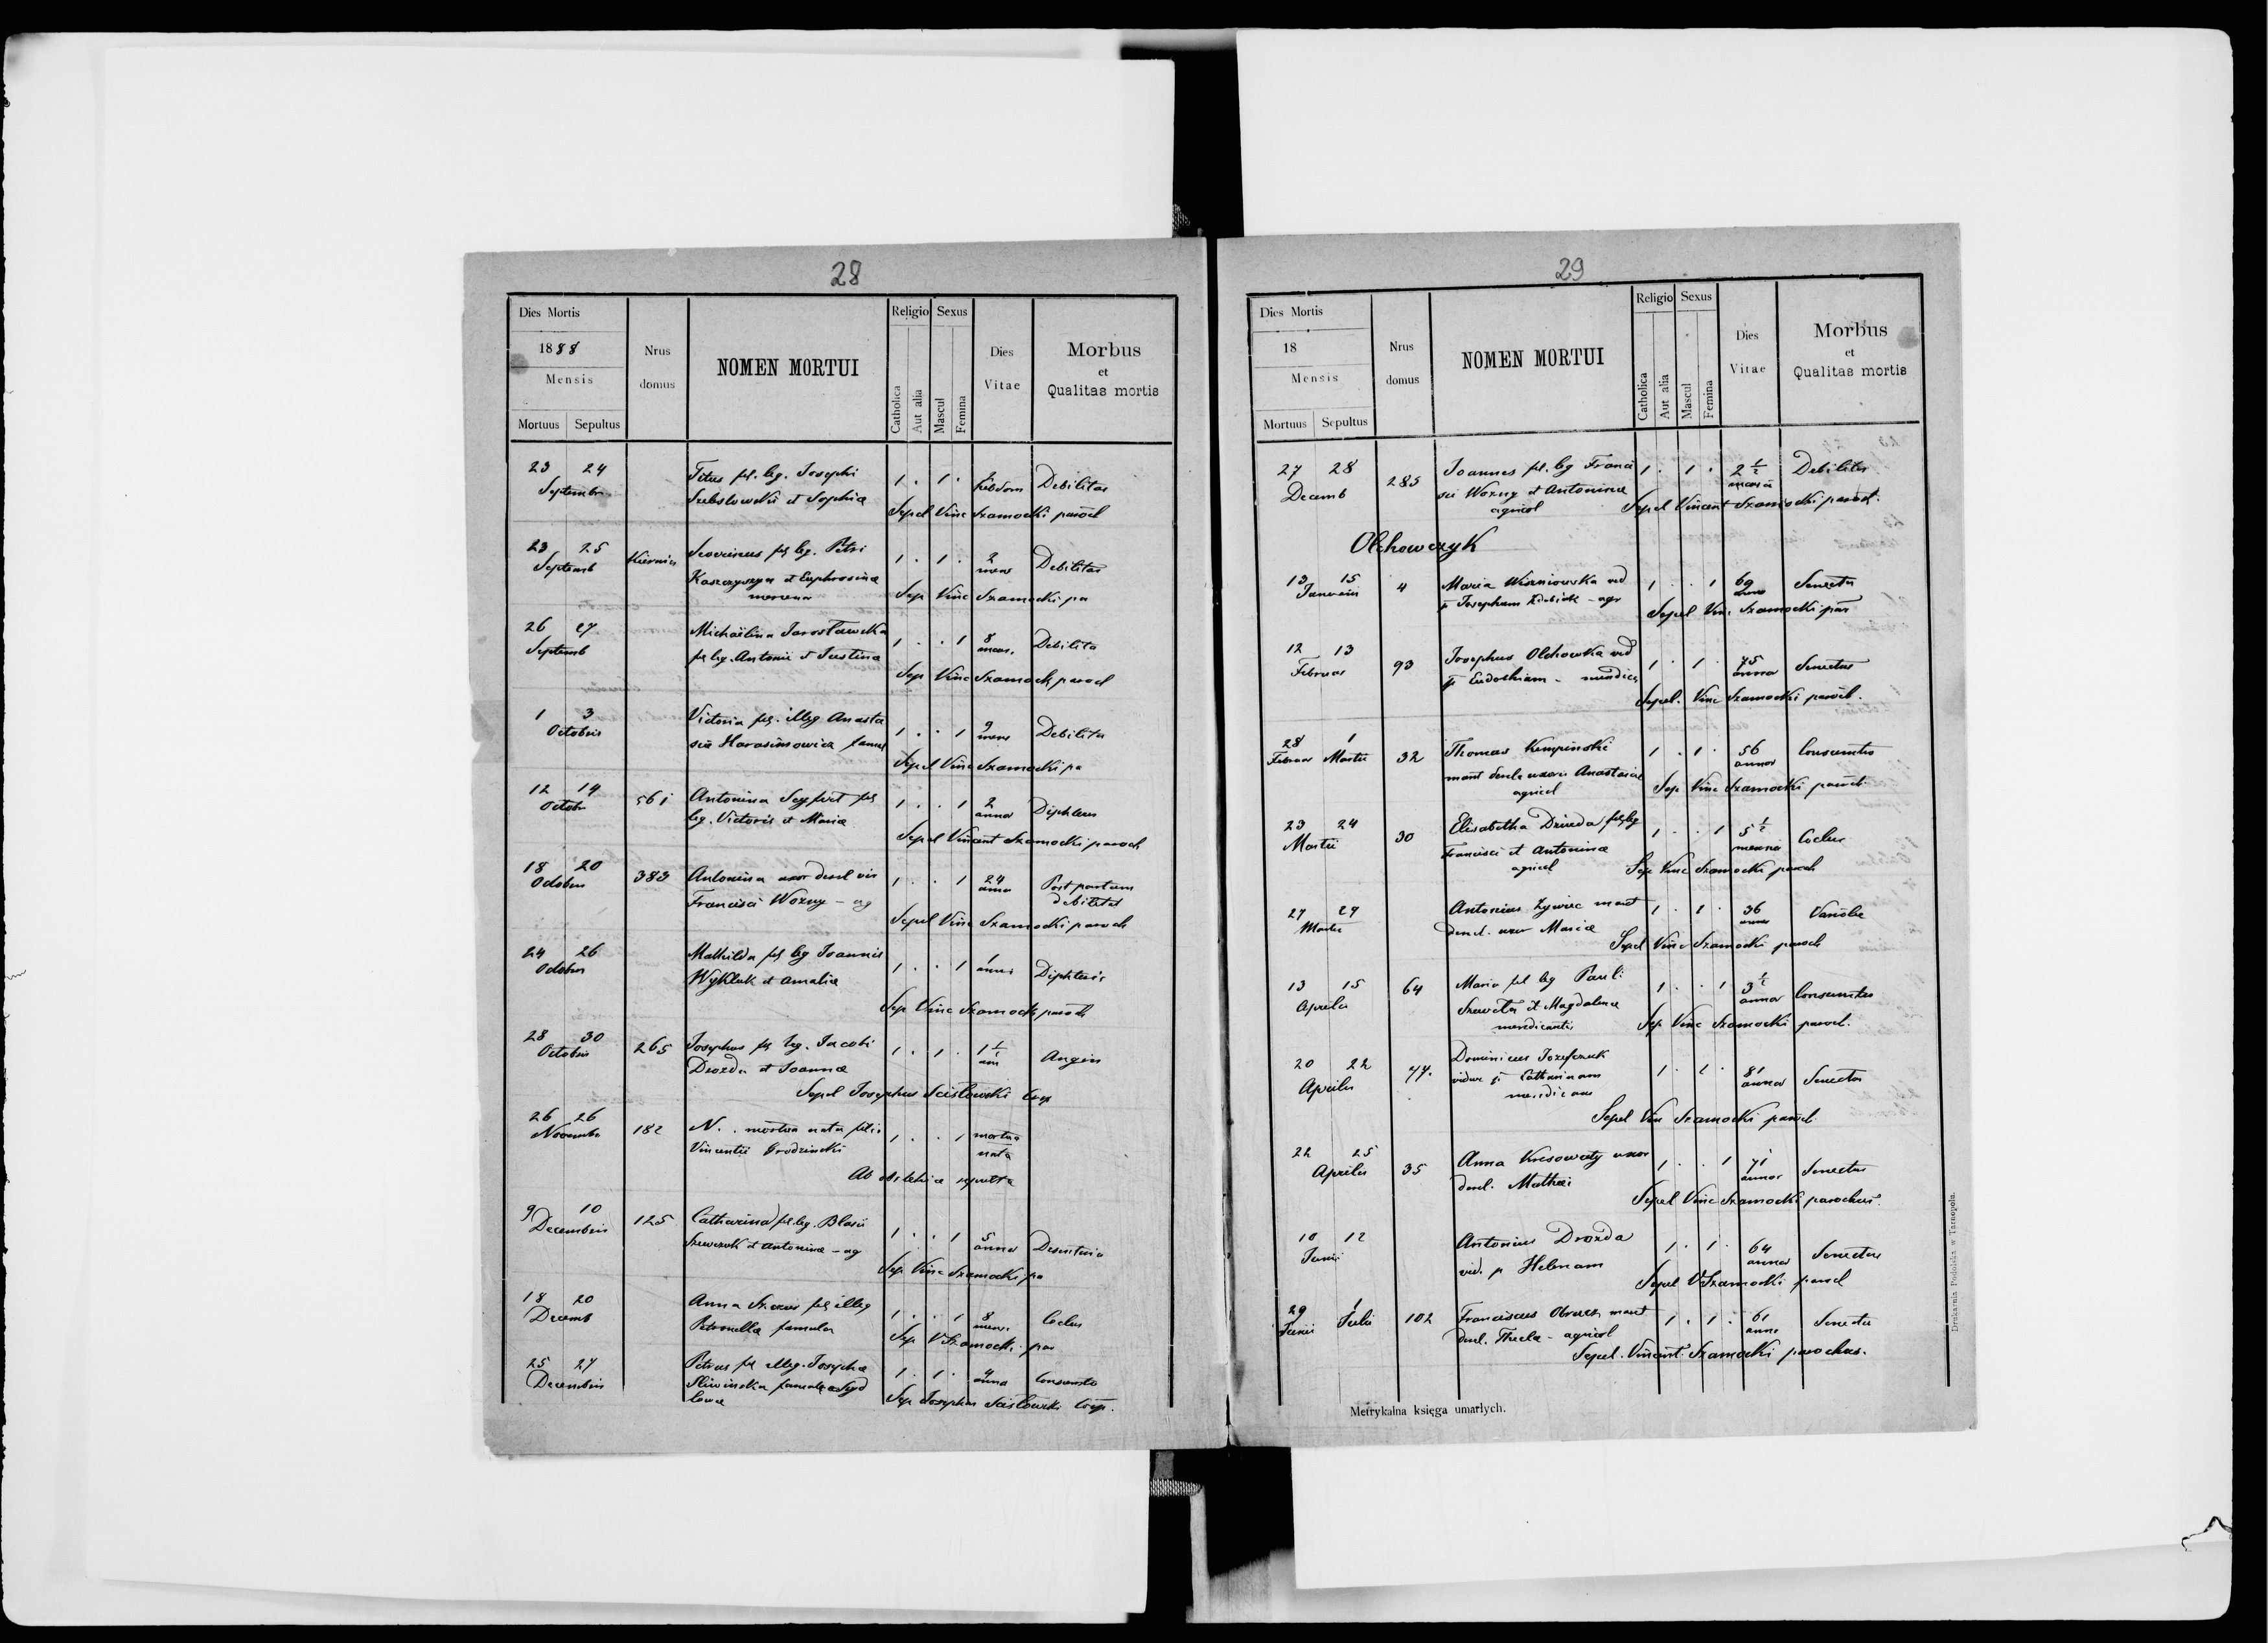 28
Dies Mortis
1888
Mensis
Mortuus Sepultus
Nrus domus
NOMEN MORTUI
Religio Sexus
Catholica
Aut alia
Mascul
Femina
Dies Vitae
Morbus
et
Qualitas mortis
23 24 Titus fil. leg. Josephi 1 . 1 . 2 Debilitas
Septembr Szebslowski et Sophia hebdom
Sepel Vinc Szamocki paroch
23 25 Severinus fil leg. Petri 1 . 1 . 2 Debilitas
Septemb Kaszczyszyn et Euphrosina mens
Sep Vinc Szamocki pa
26 27 Michaëlina Jarosławska 1 . . 1 8 Debilita
Septemb fil leg. Antonii et Justina mens.
Sep Vinc Szamocki paroch
1 3 Victoria fil. illeg Anasta 1 . . 1 9 Debilitas
Octobris siae Harasimowicz famul mens
Sepel Vinc Szamocki pa
12 14 561 Antonina Seyfert fil 1 . . 1 2 Diphteris
Octobr leg. Victoris et Maria anna
Sepel Vincent Szamocki paroch
18 20 383 Antonina uxor derel vir 1 . . 1 24 Post partum
Octobris Francisci Wozny - ag anno debilitas
Sepel Vinc Szamocki paroch
24 26 Mathilda fil leg Joannis 1 . . 1 1 Diphteris
Octobris Wykluk et Amalia anni
Sep Vinc Szamocki paroch
28 30 265 Josephus fil leg. Jacobi 1 . 1 . 1 1/2 Angin
Octobris Drozda et Joanna ann
Sepel Josephus Scisłowski Coop
26 26 182 N. . mortua nata filia 1 . . 1 mortua
Novembr Vincentii Grodzinski nata
Ab obstetrice sepulta
9 10 125 Catharina fil. leg. Blasii 1 . . 1 5 Desenteria
Decembris Szewczuk et Antonina - ag anna
Sep Vinc Szamocki pa
18 20 Anna fil illeg 1 . . 1 8 Coclus
Decemb Petronella famula mens.
Sep V Szamocki par
25 27 Petrus fil illeg. Josepha 1 . 1 . 4 Consumto
Decembris Sliwinska famula anna
Sep Josephus Scisłowski Coop.
29
Dies Mortis
18
Mensis
Mortuus Sepultus
Nrus domus
NOMEN MORTUI
Religio Sexus
Catholica
Aut alia
Mascul
Femina
Dies Vitae
Morbus
et
Qualitas mortis
27 28 285 Joannes fil. leg Franci 1 . 1 . 2 1/2 Debilitas
Decemb sci Wozny et Antonina mensis
agricol Sepel Vincent Szamocki paroch.
Olchowczyk
13 15 4 Maria Wiszniowska vid 1 . . 1 69 Senectus
Januarii p Josephum - agr anno
Sepel Vinc Szamocki par
12 13 93 Josephus Olchowka vid 1 . 1 . 75 Senectus
Februar p Eudockiam - mendica annor
Sepel. Vinc Szamocki paroch.
28 1 32 Thomas Kempinski 1 . 1 . 56 Consumtio
Februar Martii marit derel. uxoris Anastasiae annor
agricol Sep Vinc Szamocki paroch
23 24 30 Elisabetha Dziuda fil leg 1 . . 1 5 1/2 Coclus
Martii Francisci et Antonina mensis
agricol Sep Vinc Szamocki paroch
27 29 Antonius Zywiec marit 1 . 1 . 36 Variolae
Martii derel. uxor Maria annor
Sepel Vinc Szamocki paroch
13 15 64 Maria fil leg Pauli 1 . . 1 3 1/2 Consumtus
Aprilis et Magdalena annor
mendicantis Sep Vinc Szamocki paroch.
20 22 77. Dominicus Jozefczuk 1 . 1 . 81 Senectus
Aprilis viduus p Catharinam annor
mendicans
Sepel Vin Szamocki paroch
22 25 35 Anna Kresowaty uxor 1 . . 1 71 Senectus
Aprilis derel. Mathei annor
Sepel Vinc Szamocki parochus.
10 12 Antonius Drozda 1 . 1 . 64 Senectus
Junii vid. p Helenam annor
Sepel V Szamocki paroch
29 1 102 Franciscus marit 1 . 1 . 61 Senectus
Junii Julii derel. Thecla - agricol anno
Sepel. Vincent. Szamocki parochus.
Metrykalna księga umarłych.
Drukarnia Podolska w Tarnopolu.